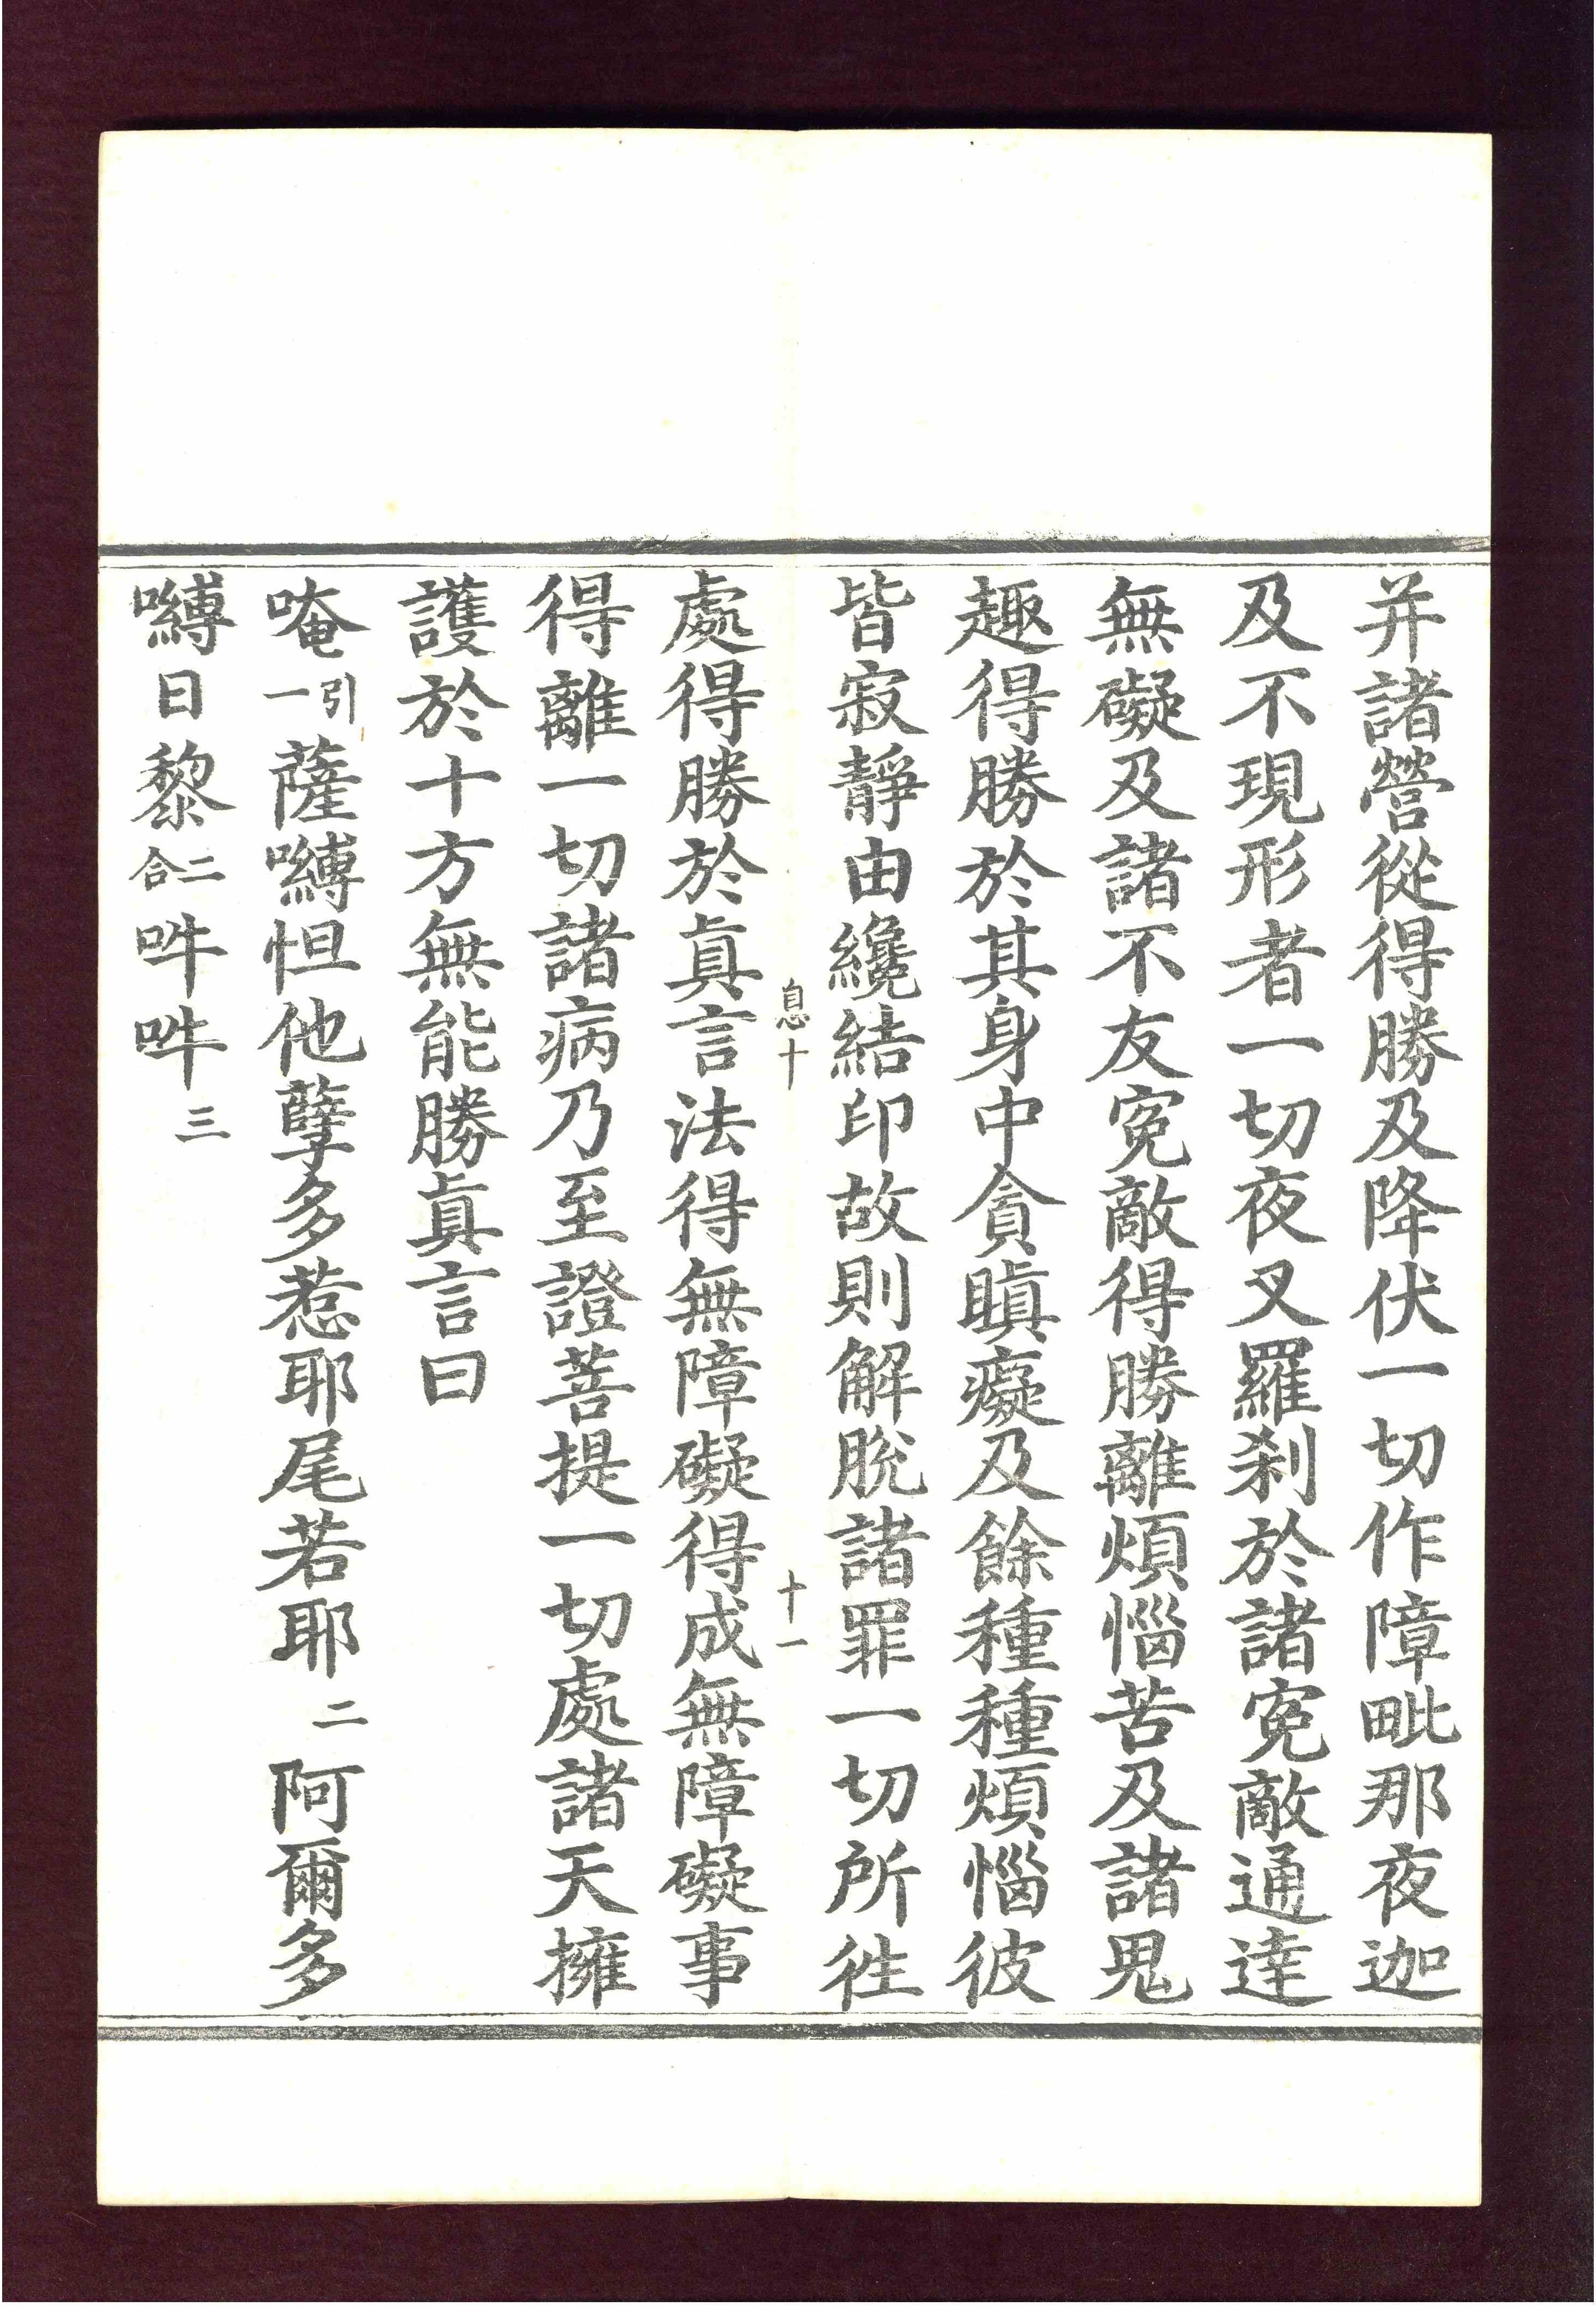 并諸營從得勝及降伏一切作障毗那夜迦
及不現形者一切夜叉羅刹於諸寃敵通達
無礙及諸不友寃敵得勝離煩惱苦及諸鬼
趣得勝於其身中貪瞋癡及餘種種煩惱彼
皆寂靜由纔結印故則解脫諸罪一切所徃
息十 十一
處得勝於眞言法得無障礙得成無障礙事
得離一切諸病乃至證菩提一切處諸天擁
護於十方無能勝眞言曰
唵引一薩嚩怛他孽多惹耶尾若耶二阿爾多
嚩日黎二合吽吽三